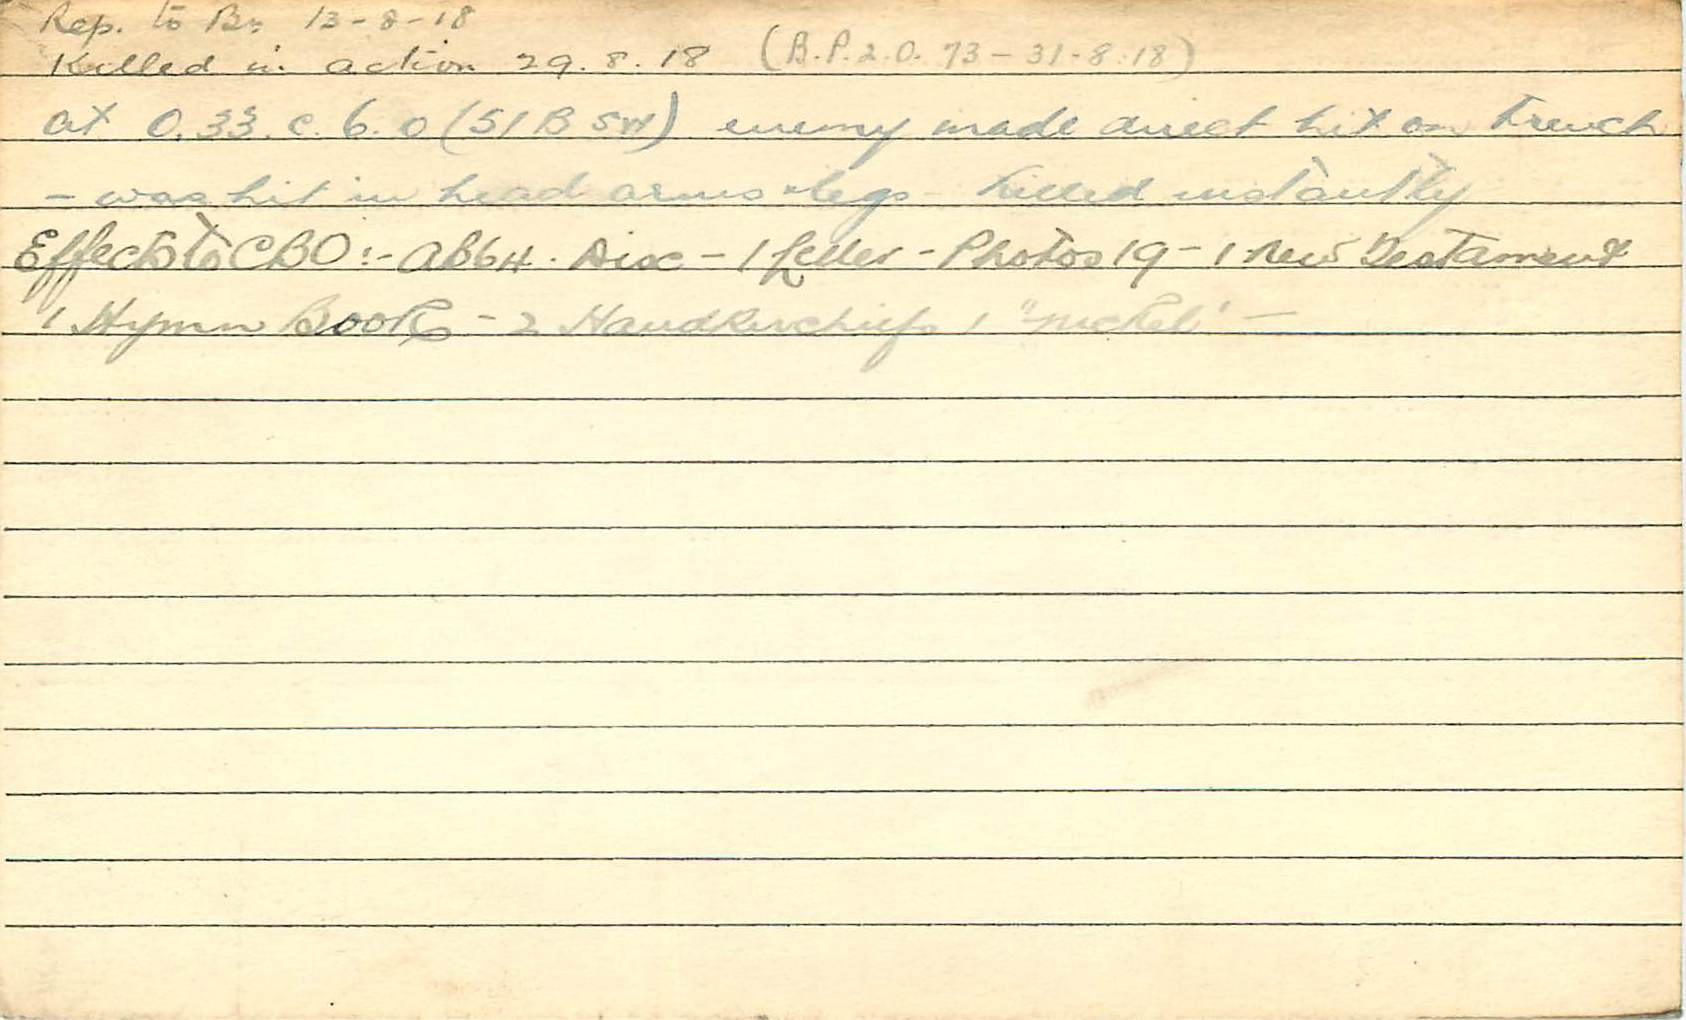 Rep. to Bn 13-8-18
Killed in action 29.8.18 (B.P.2.O. 73-31-8-18)
at O.33.c.6.0 (51B SW) enemy made direct hit on trench
- was hit in head arms & legs - killed instantly
Effects to CBO:- AB64. Disc - 1 Letter - Photos 19 - 1 New Testament
1 Hymn Book - 2 Handkerchiefs 1 "nickel" -